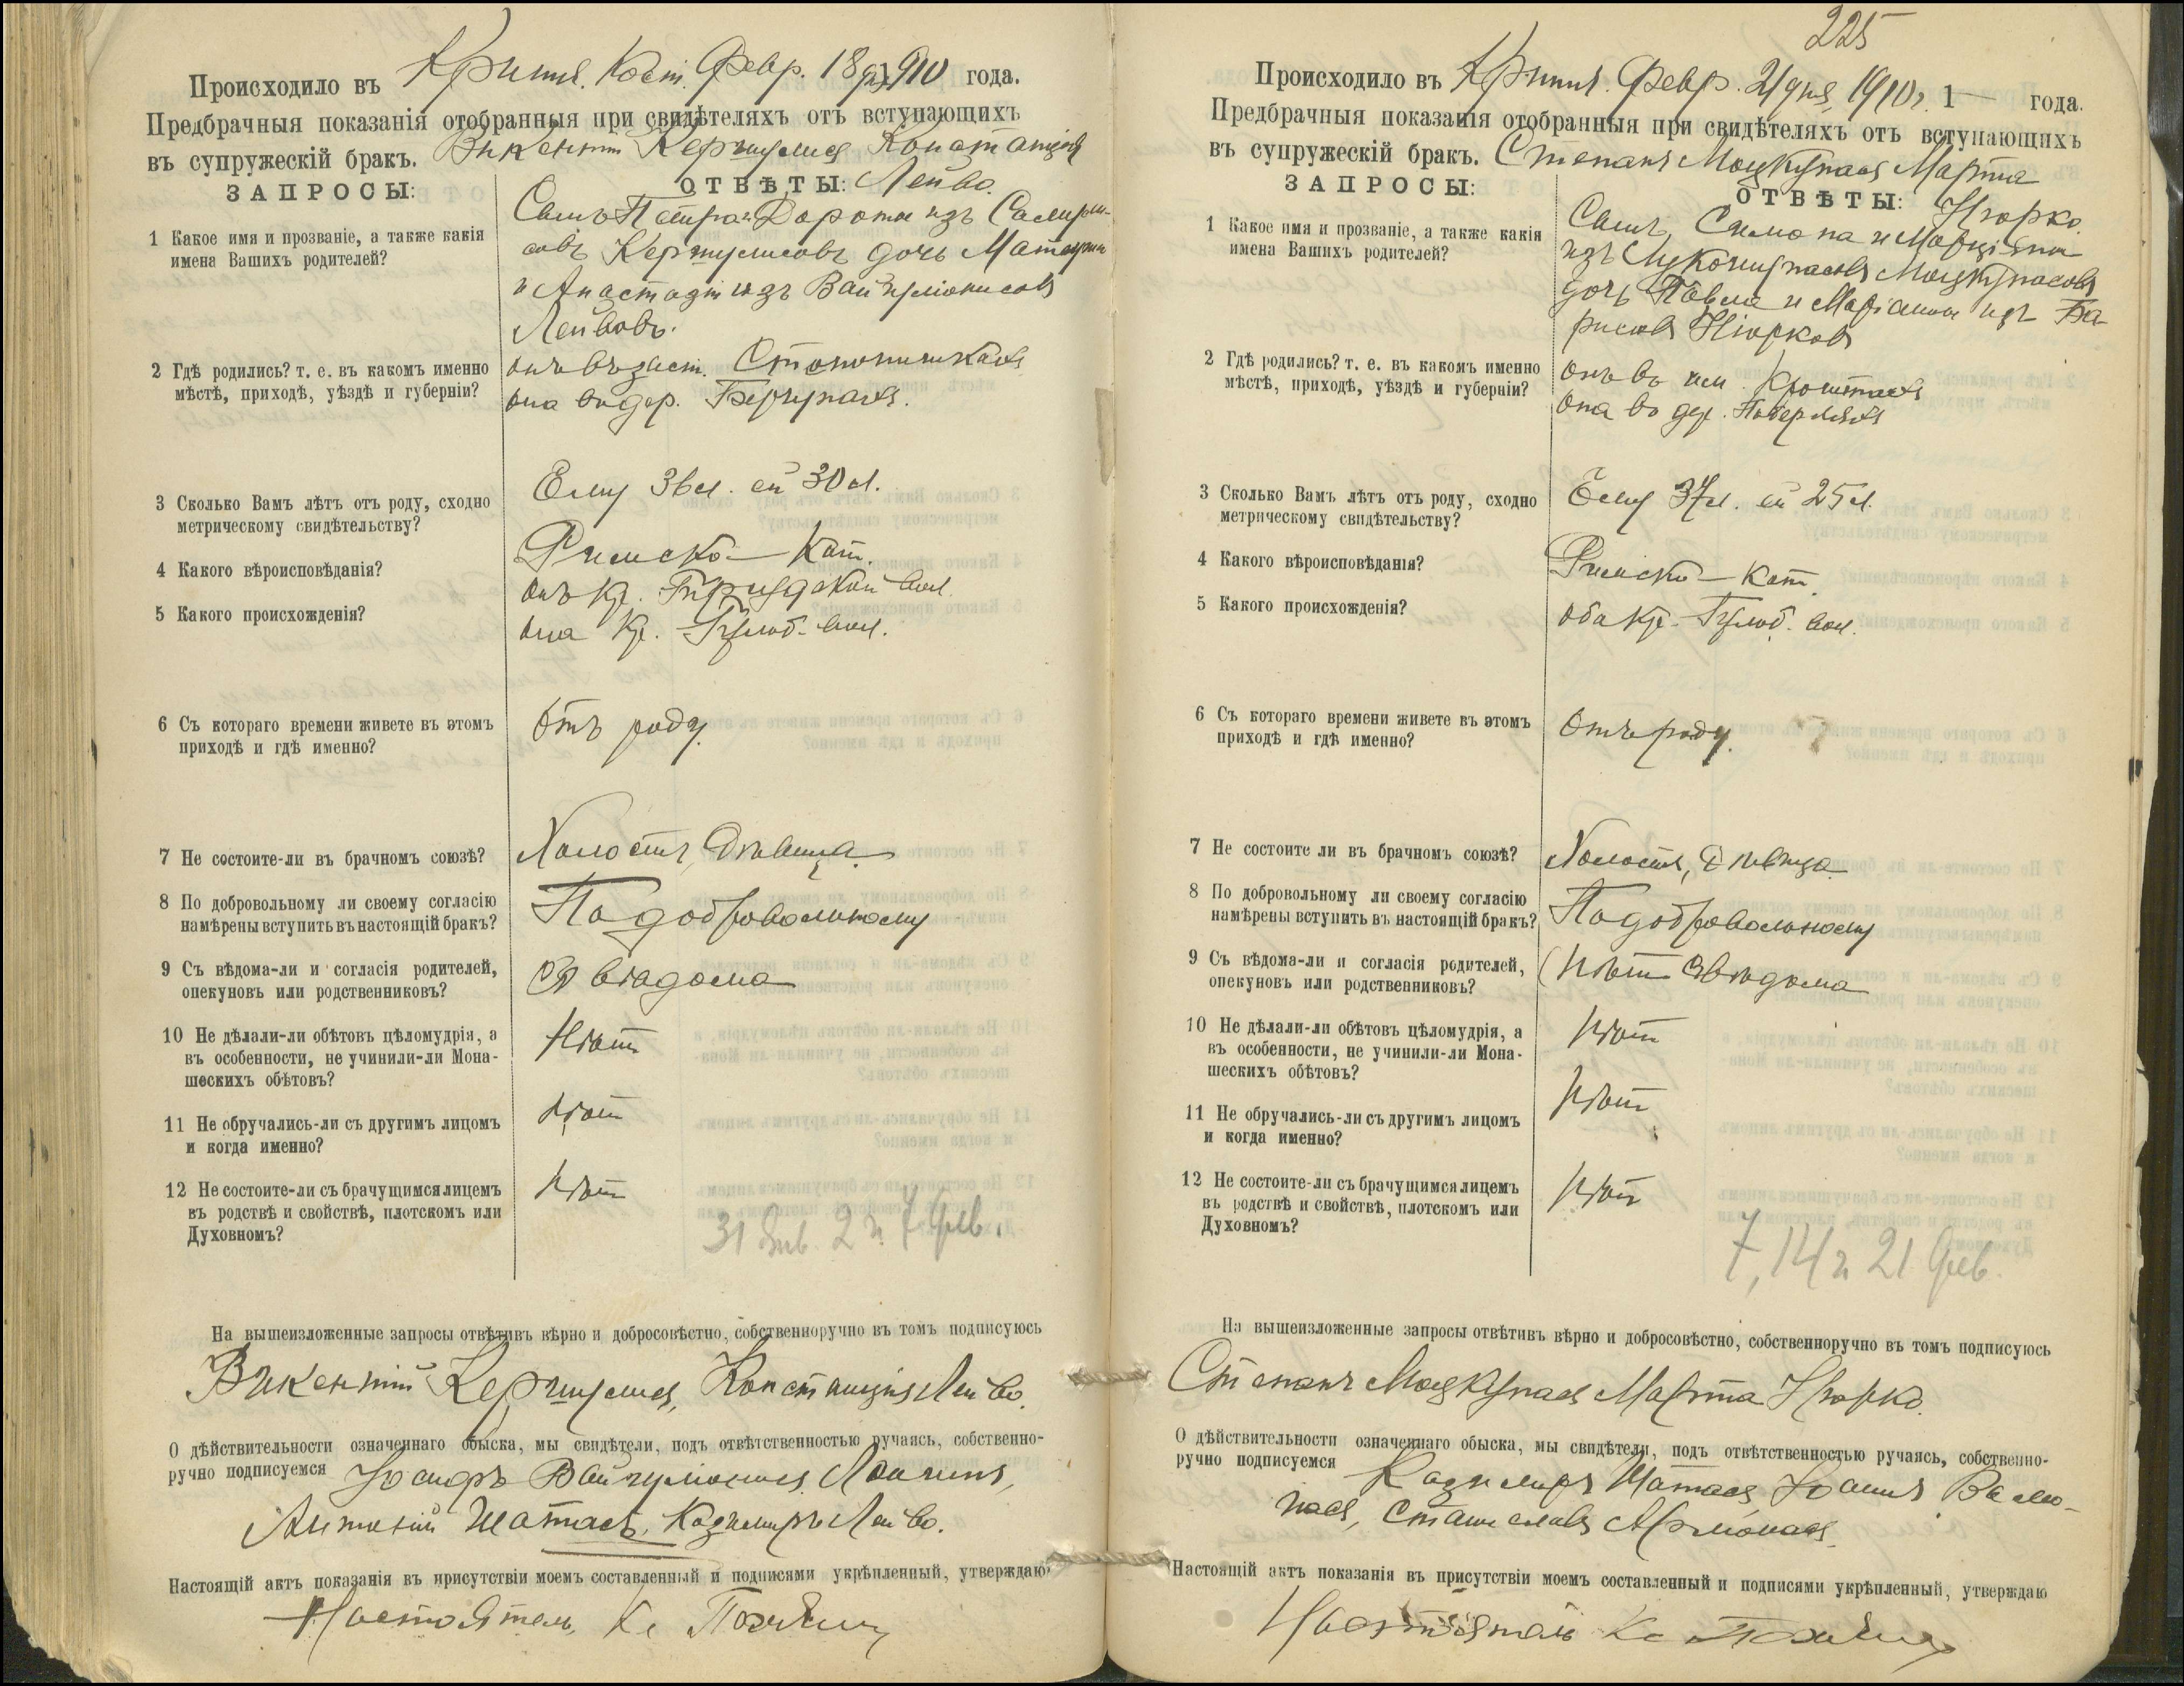 Происходило въ Кринч. Кост. Февр. 18 дня 1910 года.
Предбрачныя показанія отобранныя при свидѣтеляхъ отъ вступающихъ
въ супружескій бракъ. Викентій Кершулисъ Констанція
Лейво.
ЗАПРОСЫ: ОТВѢТЫ:
1 Какое имя и прозваніе, а также какія
имена Вашихъ родителей?
Сынъ Петра и Дороты изъ
Кершулисовъ дочь
и Анастазіи изъ Вайчуліонисовъ
Лейвовъ.
2 Гдѣ родились? т. е. въ какомъ именно
мѣстѣ, приходѣ, уѣздѣ и губерніи?
онъ въ заст.
она въ дер.
3 Сколько Вамъ лѣтъ отъ роду, сходно
метрическому свидѣтельству?
Ему 36 л. ей 30 л.
4 Какого вѣроисповѣданія?
Римско-Кат.
5 Какого происхожденія?
онъ кр. вол.
она кр. вол.
6 Съ котораго времени живете въ этомъ
приходѣ и гдѣ именно?
Отъ роду.
7 Не состоите-ли въ брачномъ союзѣ?
Холостъ, Дѣвица.
8 По добровольному ли своему согласію
намѣрены вступить въ настоящій бракъ?
По добровольному
9 Съ вѣдома-ли и согласія родителей,
опекуновъ или родственниковъ?
Съ вѣдома
10 Не дѣлали-ли обѣтовъ цѣломудрія, а
въ особенности, не учинили-ли Мона-
шескихъ обѣтовъ?
Нѣтъ
11 Не обручались-ли съ другимъ лицомъ
и когда именно?
Нѣтъ
12 Не состоите-ли съ брачущимся лицемъ
въ родствѣ и свойствѣ, плотскомъ или
Духовномъ?
Нѣтъ
31 Янв. 2 и 7 Фев.
На вышеизложенные запросы отвѣтивъ вѣрно и добросовѣстно, собственноручно въ томъ подписуюсь
Викентій Кершулисъ, Констанція Лейво.
О дѣйствительности означеннаго обыска, мы свидѣтели, подъ отвѣтственностью ручаясь, собственно-
ручно подписуемся Іосифъ Вайчуліонисъ,
Антоній Шатасъ, Казимиръ Лейво.
Настоящій актъ показанія въ присутствіи моемъ составленный и подписями укрѣпленный, утверждаю
Настоятель Кс.
225
Происходило въ Кринч. Февр. 21 дня 1910 г. 1— года.
Предбрачныя показанія отобранныя при свидѣтеляхъ отъ вступающихъ
въ супружескій бракъ. Степанъ Моцкунасъ Марта
Нюрко.
ЗАПРОСЫ: ОТВѢТЫ:
1 Какое имя и прозваніе, а также какія
имена Вашихъ родителей?
Сынъ Симона и Марціяны
изъ Моцкунасовъ
дочь Павла и Маріанны изъ Ба-
рисовъ Нюрковъ
2 Гдѣ родились? т. е. въ какомъ именно
мѣстѣ, приходѣ, уѣздѣ и губерніи?
Онъ въ им. Кроштахъ
Она въ дер.
3 Сколько Вамъ лѣтъ отъ роду, сходно
метрическому свидѣтельству?
Ему 37 л. ей 25 л.
4 Какого вѣроисповѣданія?
Римско-Кат.
5 Какого происхожденія?
оба кр. вол.
6 Съ котораго времени живете въ этомъ
приходѣ и гдѣ именно?
Отъ роду.
7 Не состоите ли въ брачномъ союзѣ?
Холостъ, Дѣвица.
8 По добровольному ли своему согласію
намѣрены вступить въ настоящій бракъ?
По добровольному
9 Съ вѣдома-ли и согласія родителей,
опекуновъ или родственниковъ?
(Нѣтъ Свѣдома
10 Не дѣлали-ли обѣтовъ цѣломудрія, а
въ особенности, не учинили-ли Мона-
шескихъ обѣтовъ?
Нѣтъ
11 Не обручались-ли съ другимъ лицомъ
и когда именно?
Нѣтъ
12 Не состоите-ли съ брачущимся лицемъ
въ родствѣ и свойствѣ, плотскомъ или
Духовномъ?
Нѣтъ
7, 14 и 21 Фев.
На вышеизложенные запросы отвѣтивъ вѣрно и добросовѣстно, собственноручно въ томъ подписуюсь
Степанъ Моцкунасъ Марта Нюрко.
О дѣйствительности означеннаго обыска, мы свидѣтели, подъ отвѣтственностью ручаясь, собственно-
ручно подписуемся Казимиръ Шатасъ,
Станиславъ
Настоящій актъ показанія въ присутствіи моемъ составленный и подписями укрѣпленный, утверждаю
Настоятель Кс.